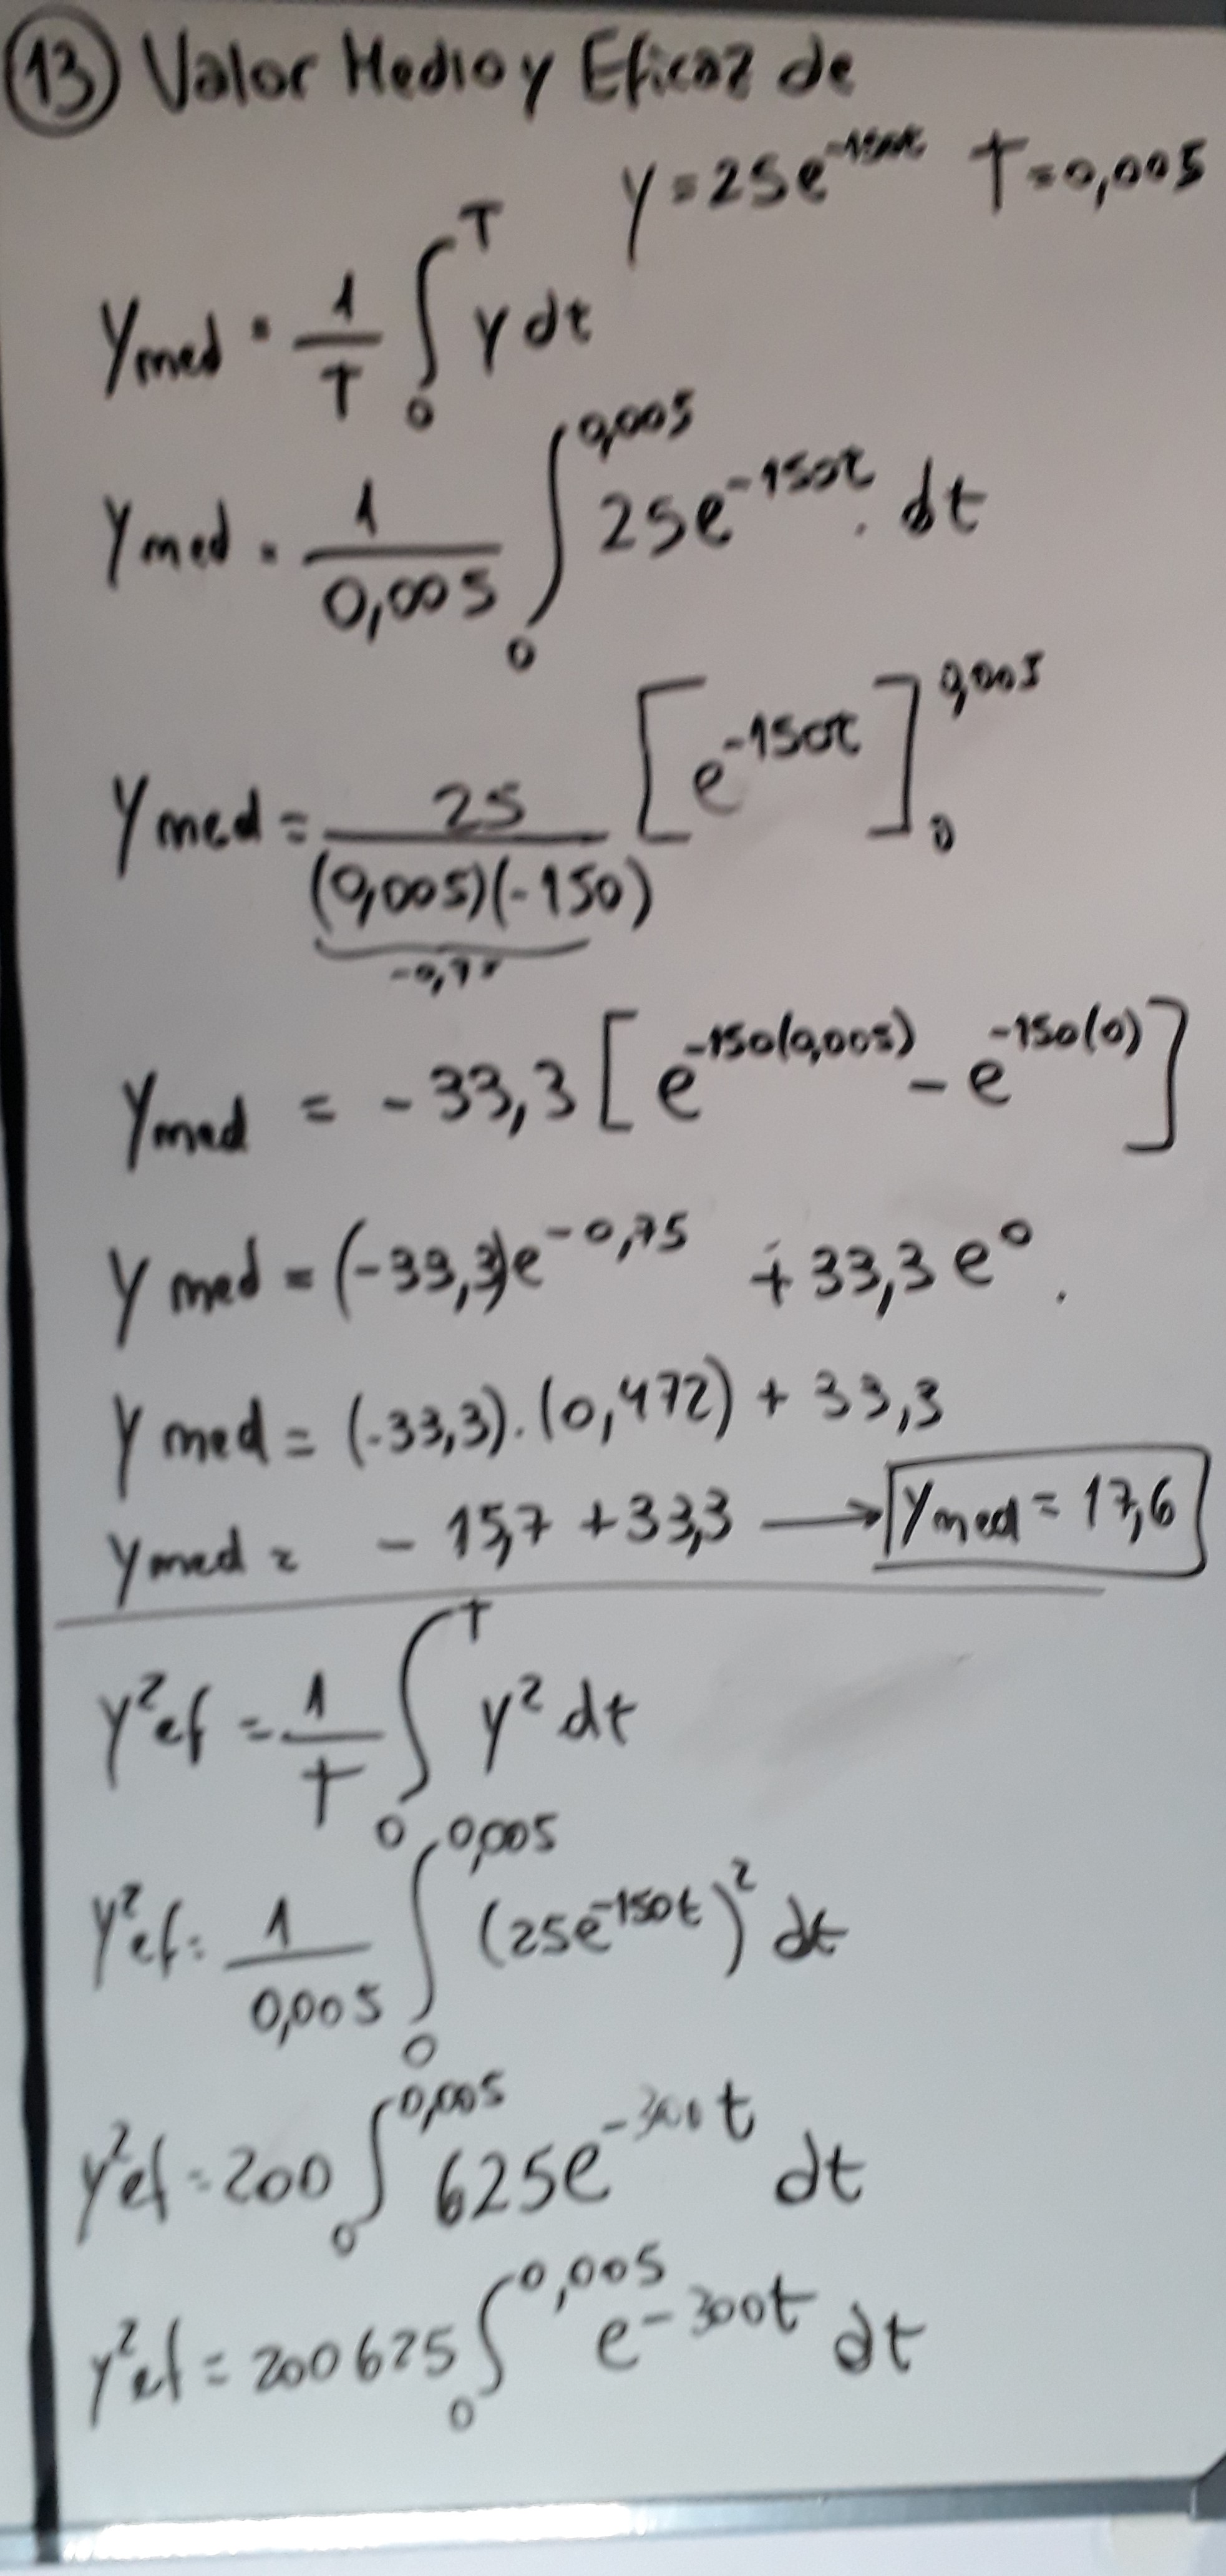 13 Valor Medio y Eficaz de
y = 25e^-150t T=0,005
Ymed = 1/T ∫₀^T Y dt
Ymed = 1/0,005 ∫₀^0,005 25e^-150t . dt
Ymed = 25/(0,005)(-150) [e^-150t]₀^0,005
-0,75
Ymed = -33,3 [e^-150(0,005) - e^-150(0)]
Ymed = (-33,3)e^-0,75 + 33,3 e^0 .
Ymed = (-33,3).(0,472) + 33,3
Ymed = - 15,7 + 33,3 → Ymed = 17,6
Y²ef = 1/T ∫₀^T y² dt
Y²ef = 1/0,005 ∫₀^0,005 (25e^-150t)² dt
Y²ef = 200 ∫₀^0,005 625e^-300t dt
Y²ef = 200 625 ∫₀^0,005 e^-300t dt